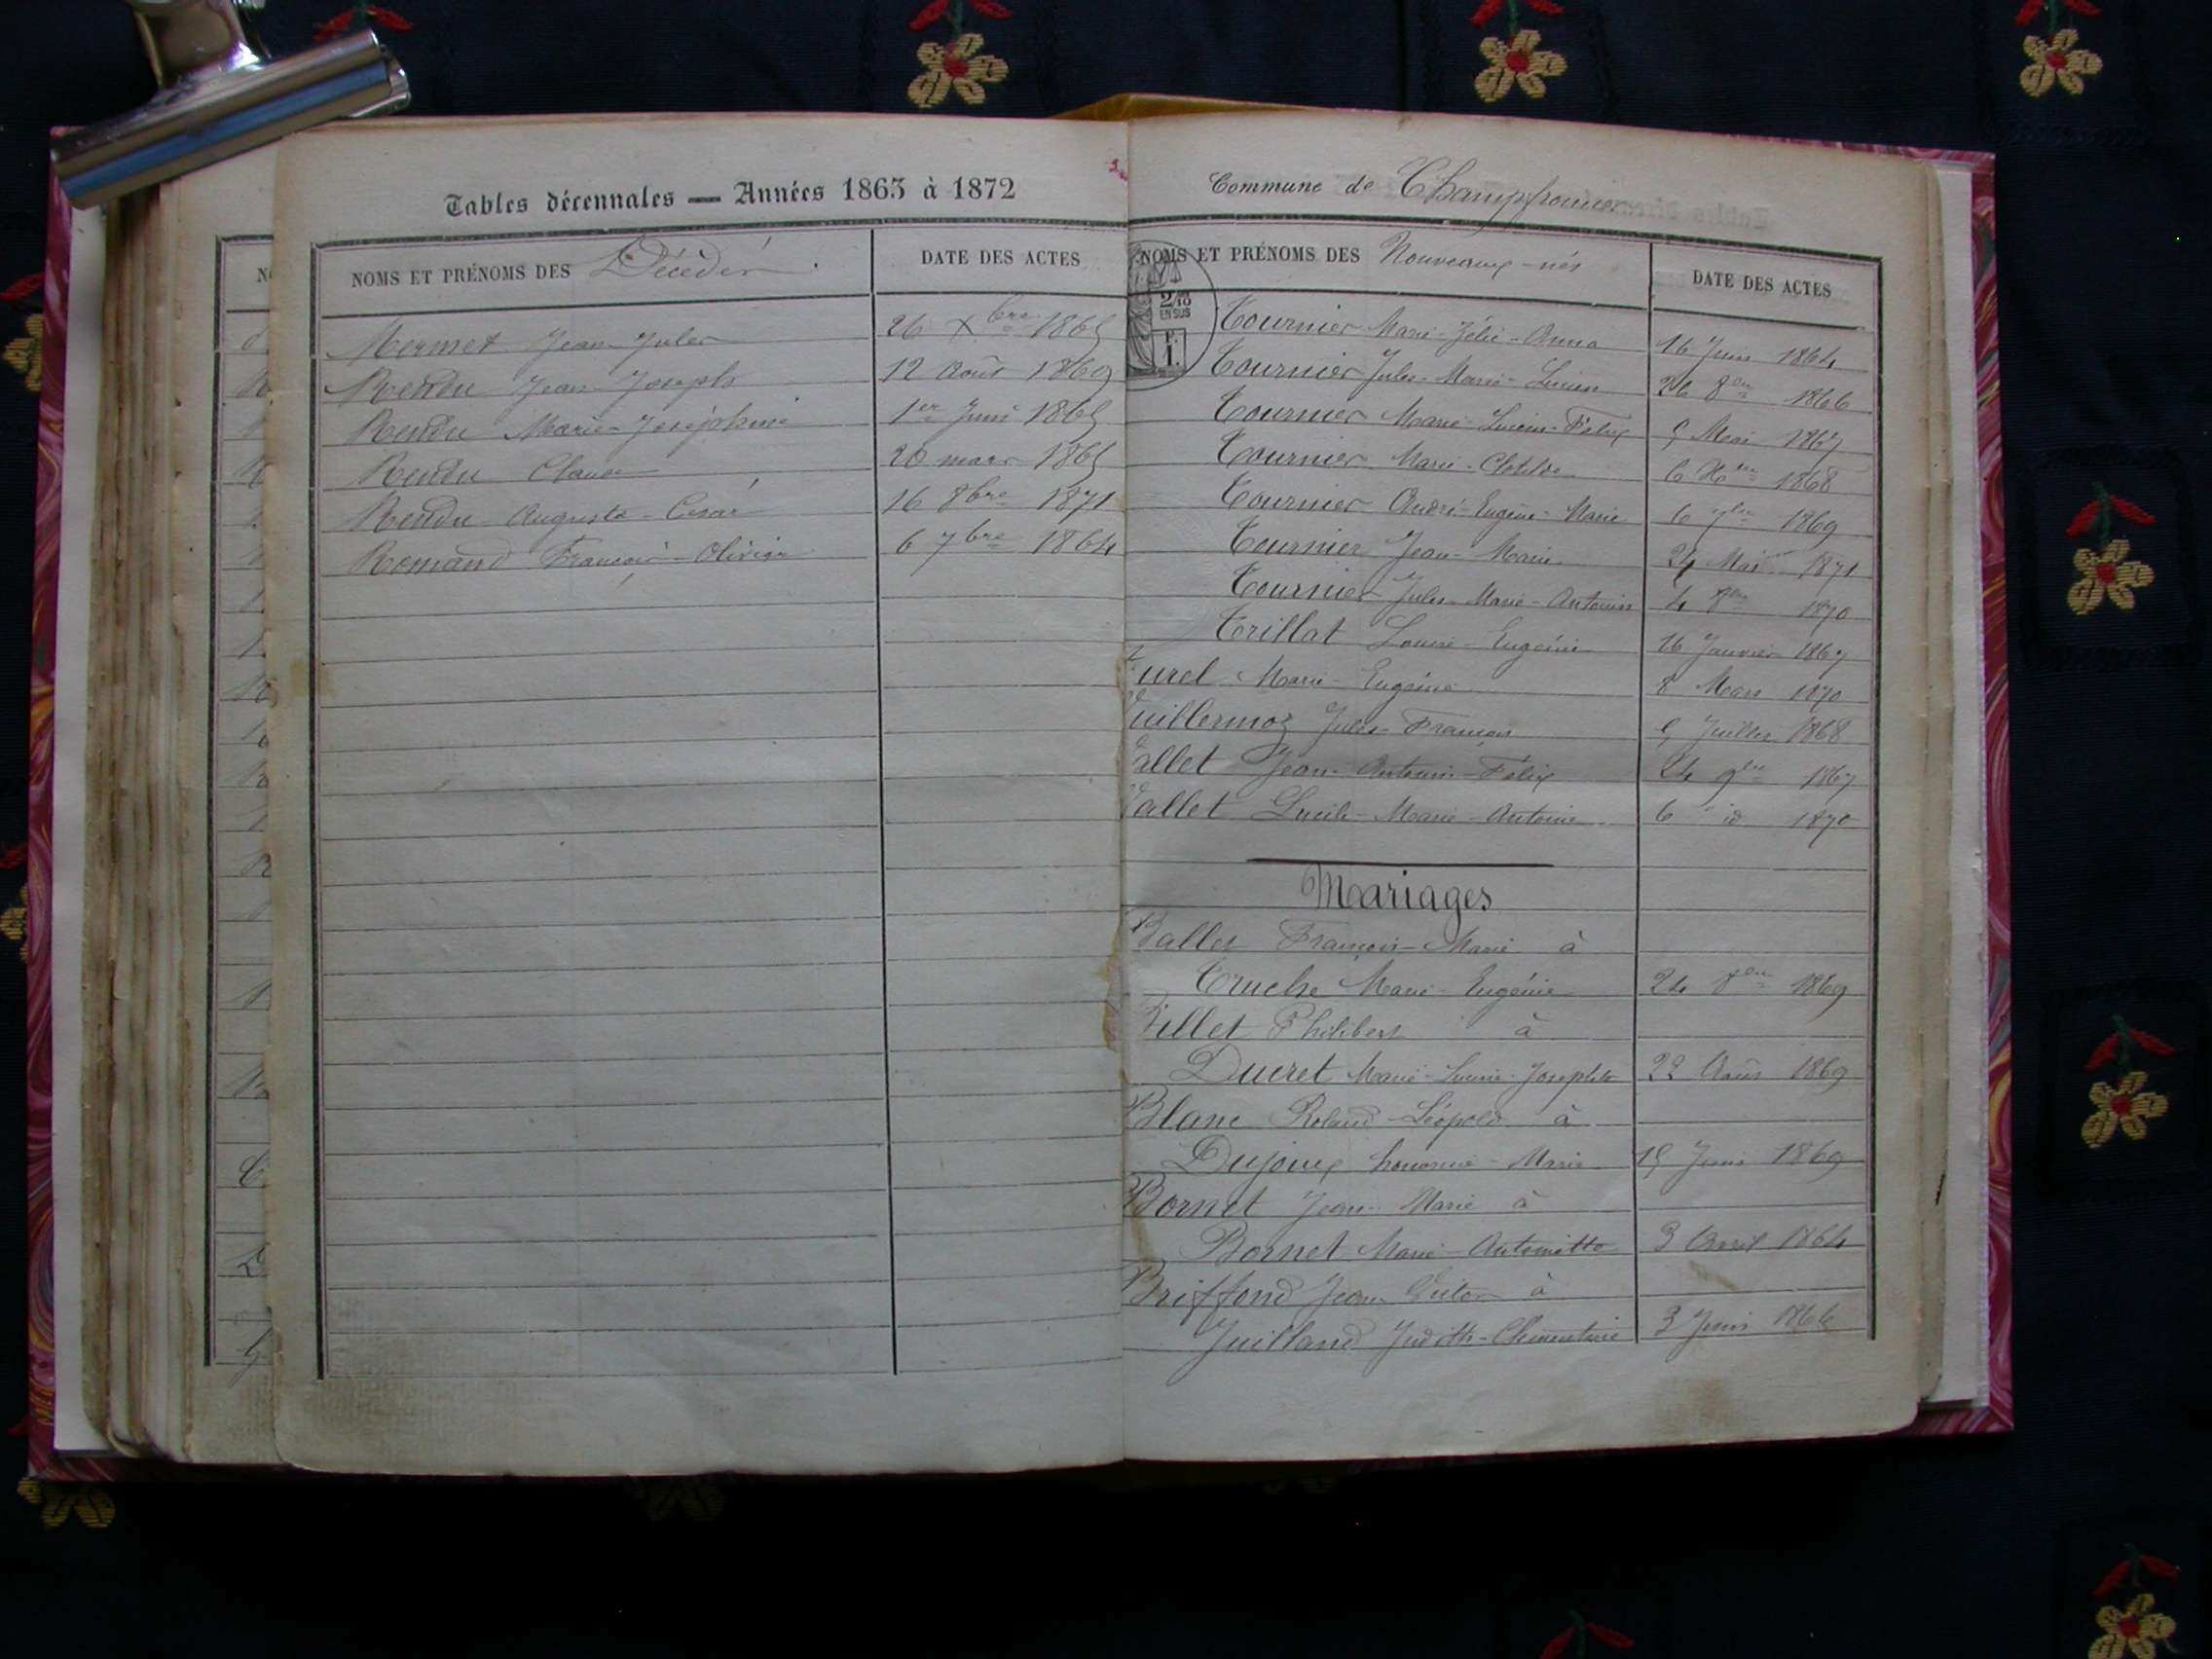 Tables décennales — Années 1863 à 1872
NOMS ET PRÉNOMS DES Décédés. DATE DES ACTES
Mermet Jean-Jules 26 Xbre 1865
Rendu Jean-Joseph 12 Août 1869
Rendu Marie-Joséphine 1er Juin 1865
Rendu Claude 20 mars 1865
Rendu Auguste-César 16 8bre 1871
Romand François-Olivier 6 7bre 1864
Commune de Champfromier
NOMS ET PRÉNOMS DES Nouveaux-nés DATE DES ACTES
2/10
EN SUS
1.
Tournier Marie-Zélie-Anna 16 Juin 1864
Tournier Jules-Marie-Lucien 26 8bre 1866
Tournier Marie-Lucien-Félix 5 Mai 1867
Tournier Marie-Clotilde 6 Xbre 1868
Tournier André-Eugène-Marie 6 7bre 1869
Tournier Jean-Marie 24 Mai 1871
Tournier Jules-Marie-Antonin 4 1870
Trillat Louise-Eugénie 16 Janvier 1867
Turel Marie-Eugénie 8 Mars 1870
Vuillermoz Jules-François 5 Juillet 1868
Vallet Jean-Antonin-Félix 24 9bre 1867
Vallet Lucile-Marie-Antoine 6 id 1870
Mariages
Ballet François-Marie à
Truche Marie-Eugénie 24 8bre 1869
Billet Philibert à
Ducret Marie-Lucie-Josephte 22 Août 1869
Blanc Roland-Léopold à
Dujoux honorine-Marie 15 Juin 1869
Bornet Jean-Marie à
Bornet Marie-Antoinette 3 Avril 1864
Briffond Jean à
Juilland Judith-Clémentine 3 Juin 1866